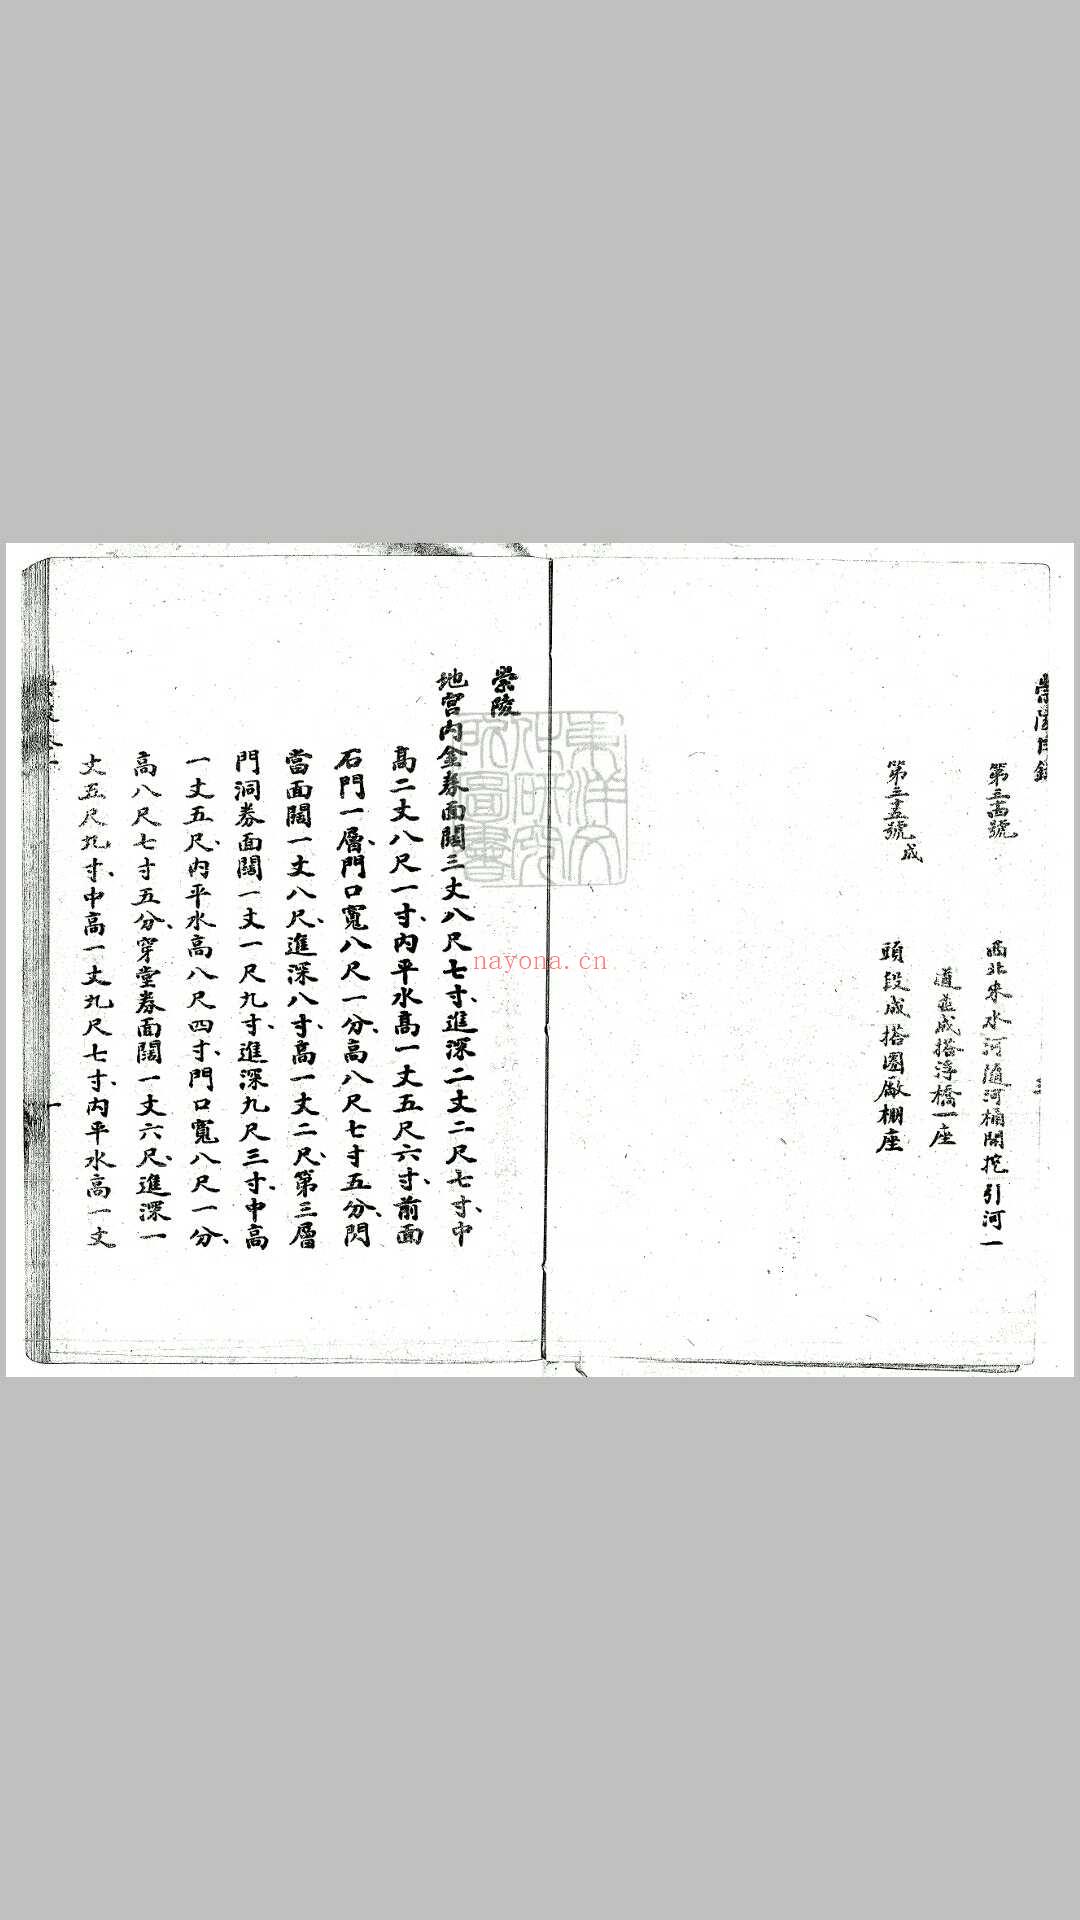 崇陵目錄
第三十四號
西北來水河隨河桶開挖引河一
道並成搭浮橋一座
第三十五號 成
頭段成搭圈厰棚座
崇陵
地宮內金券面闊三丈八尺七寸、進深二丈二尺七寸、中
高二丈八尺一寸、內平水高一丈五尺六寸、前面
石門一層、門口寬八尺一分、高八尺七寸五分、閃
當面闊一丈八尺、進深八寸、高一丈二尺、第三層
門洞券面闊一丈一尺九寸、進深九尺三寸、中高
一丈五尺、內平水高八尺四寸、門口寬八尺一分、
高八尺七寸五分、穿堂券面闊一丈六尺、進深一
丈五尺九寸、中高一丈九尺七寸、內平水高一丈
東洋文
化研究
所圖書
nayona.cn